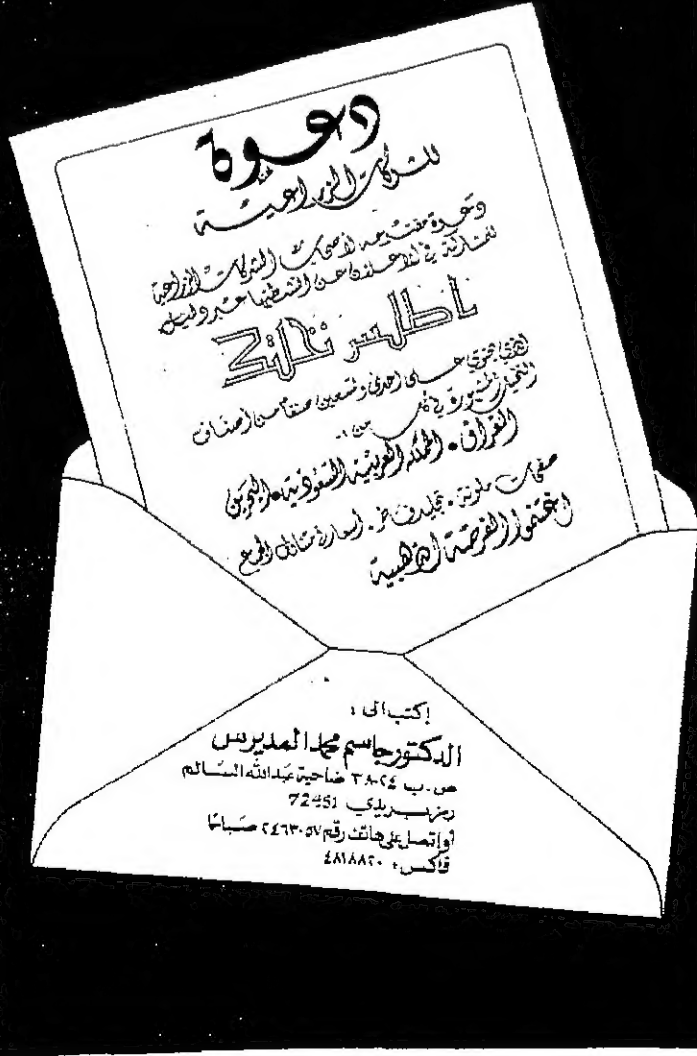 دعوة
للشركات الزراعية
دعوة مقدمة لأصحاب الشركات الزراعية
للمشاركة في الاعلان عن أنشطتها عبر دليل
اطلس نخلتك
الذي يحتوي على احدى وتسعين صنفاً من أصناف
النخيل المشهورة في كل من :
العراق . المملكة العربية السعودية . البحرين
صفحات ملونة . تجليد فاخر . أسعارنا متناول الجميع
اغتنموا الفرصة الذهبية
إكتب الى :
الدكتور جاسم محمد المديرس
ص.ب ٣٨٠٢٤ ضاحية عبدالله السالم
رمز بريدي 72451
أو إتصل على هاتف رقم ٢٤٦٣٠٥٧ صباحا
فاكس : ٤٨١٨٨٢٠